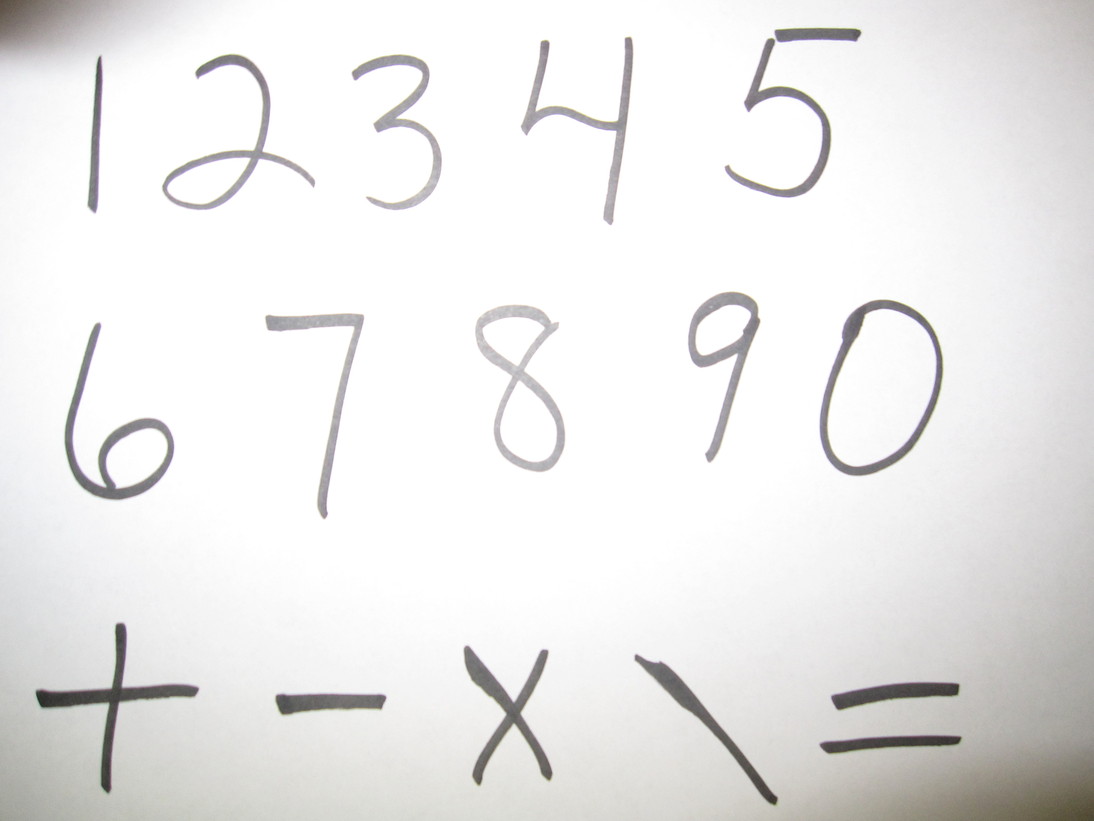 1 2 3 4 5
6 7 8 9 0
+ - x \ =